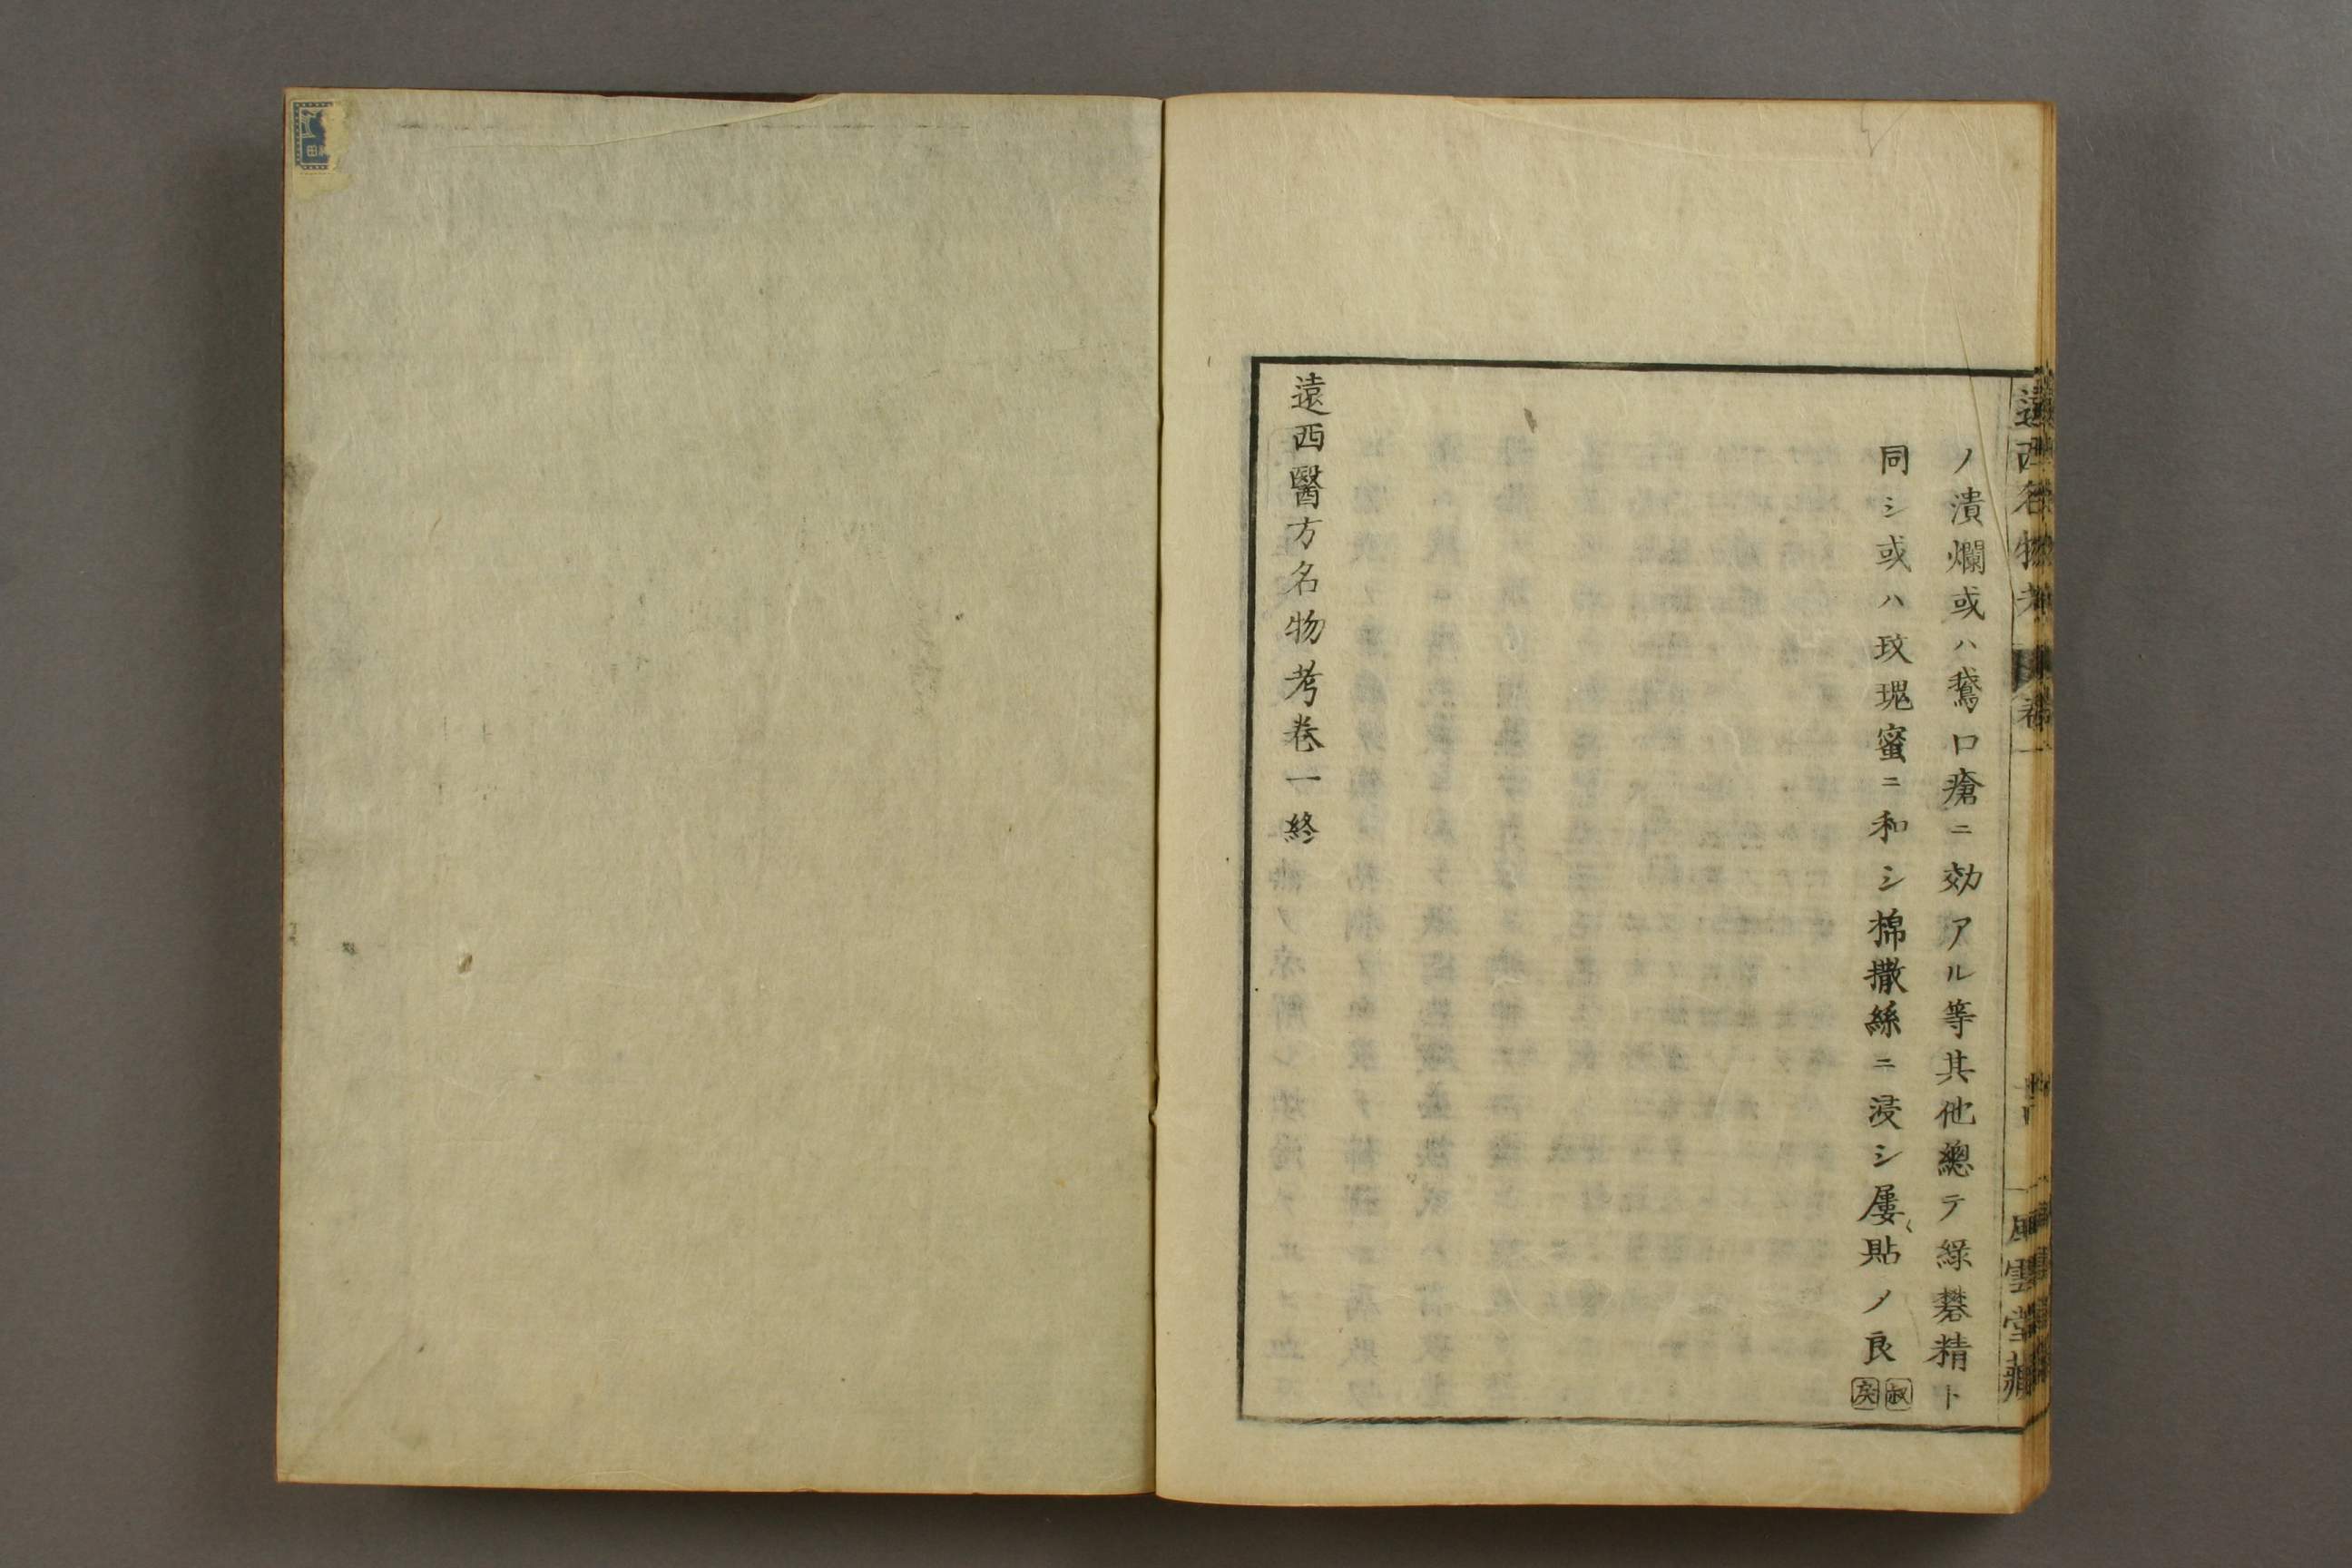 遠西名物考 卷一 風雲堂藏
ノ潰爛或ハ鵞口瘡ニ効アル等其他總テ綠礬精ト
同シ或ハ玫瑰蜜ニ和シ棉撒絲ニ浸シ屢〻貼ノ良
叔 戻
遠西醫方名物考卷一終